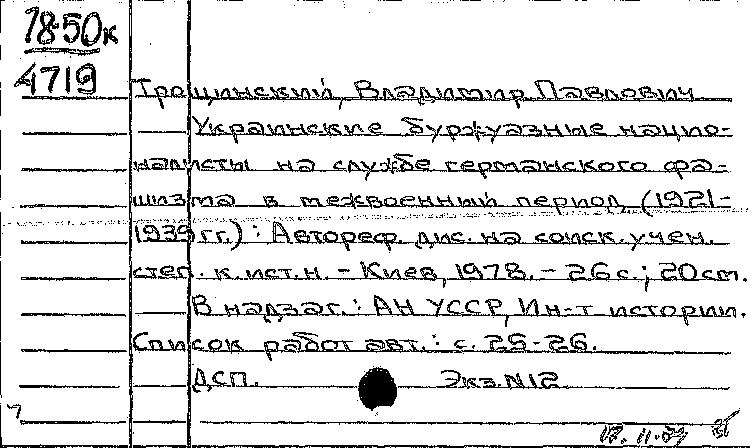 78-50к
4719
Трощинский, Владимир Павлович
Украинские буржуазные нацио-
налисты на службе германского фа-
шизма в межвоенный период (1921-
1939 гг.) : Автореф. дис. на соиск. учен.
степ. к. ист. н. - Киев, 1978. - 26 с. ; 20 см.
В надзаг. : АН УССР, Ин-т истории.
Список работ авт. : с. 25-26.
ДСП. Экз. N 12